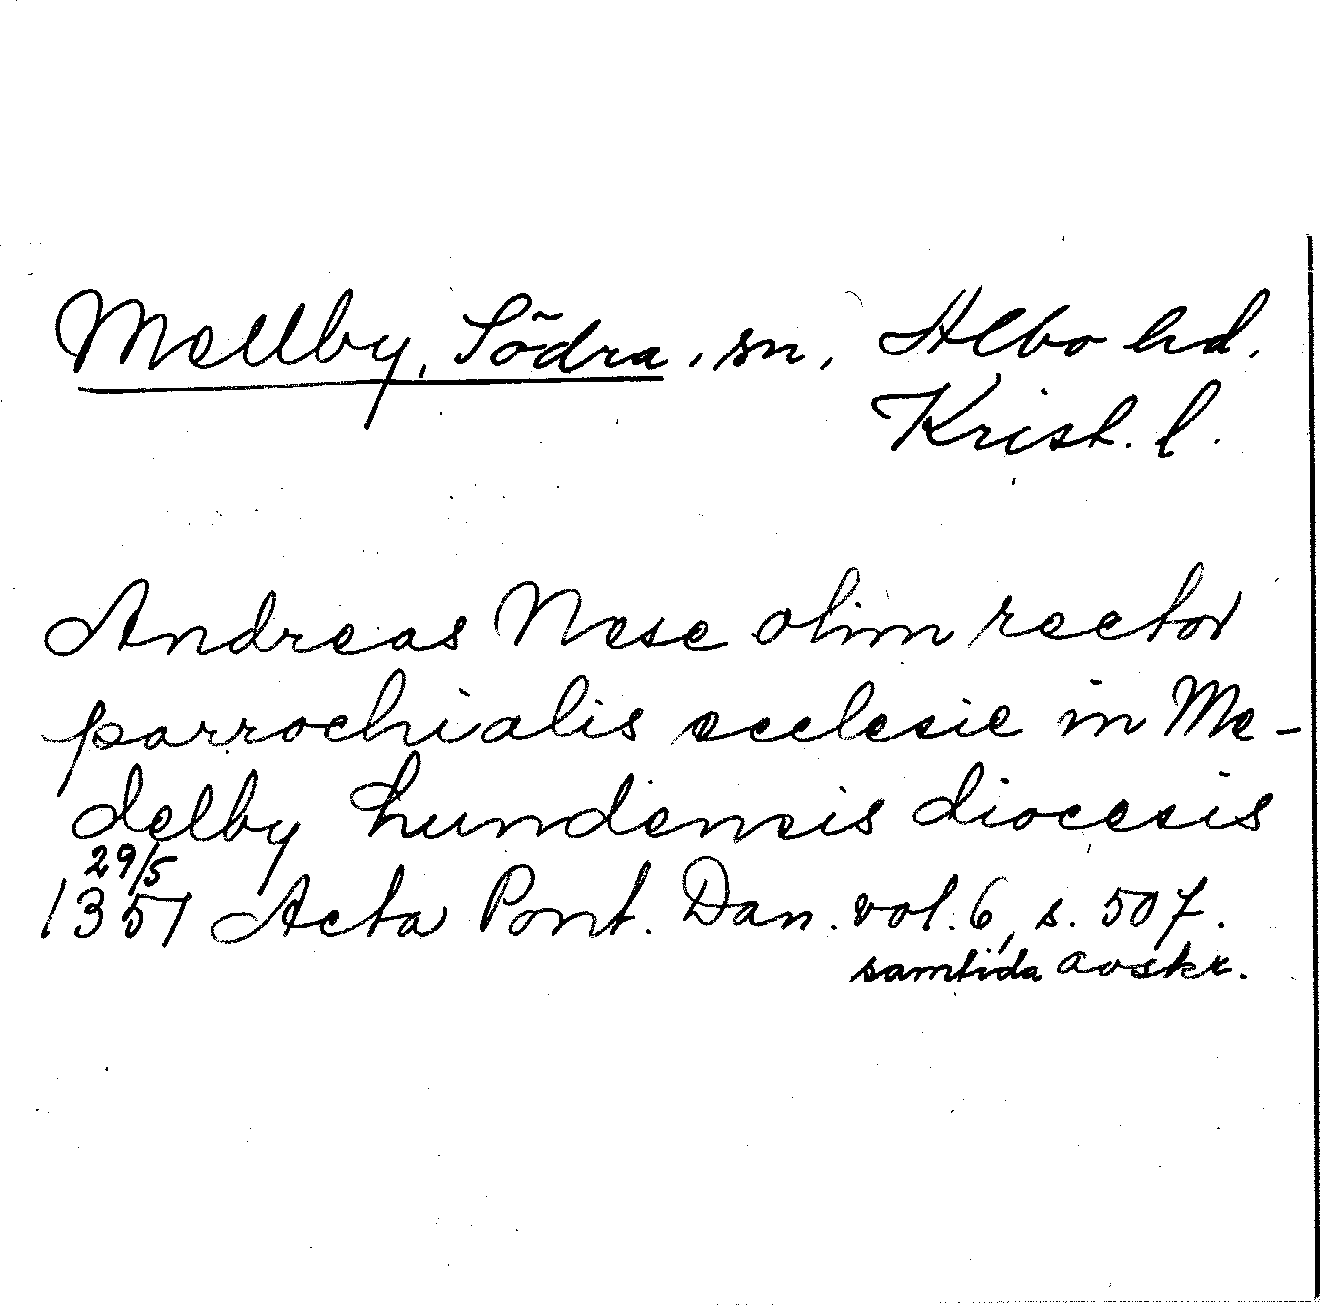 Mellby, Södra, sn, Albo hd.
Krist. l.
Andreas Nese olim rector
parrochialis ecclesie in Me-
delby Lundensis diocesis
29/5
1351 Acta Pont. Dan. vol. 6, s. 507.
samtida avskr.